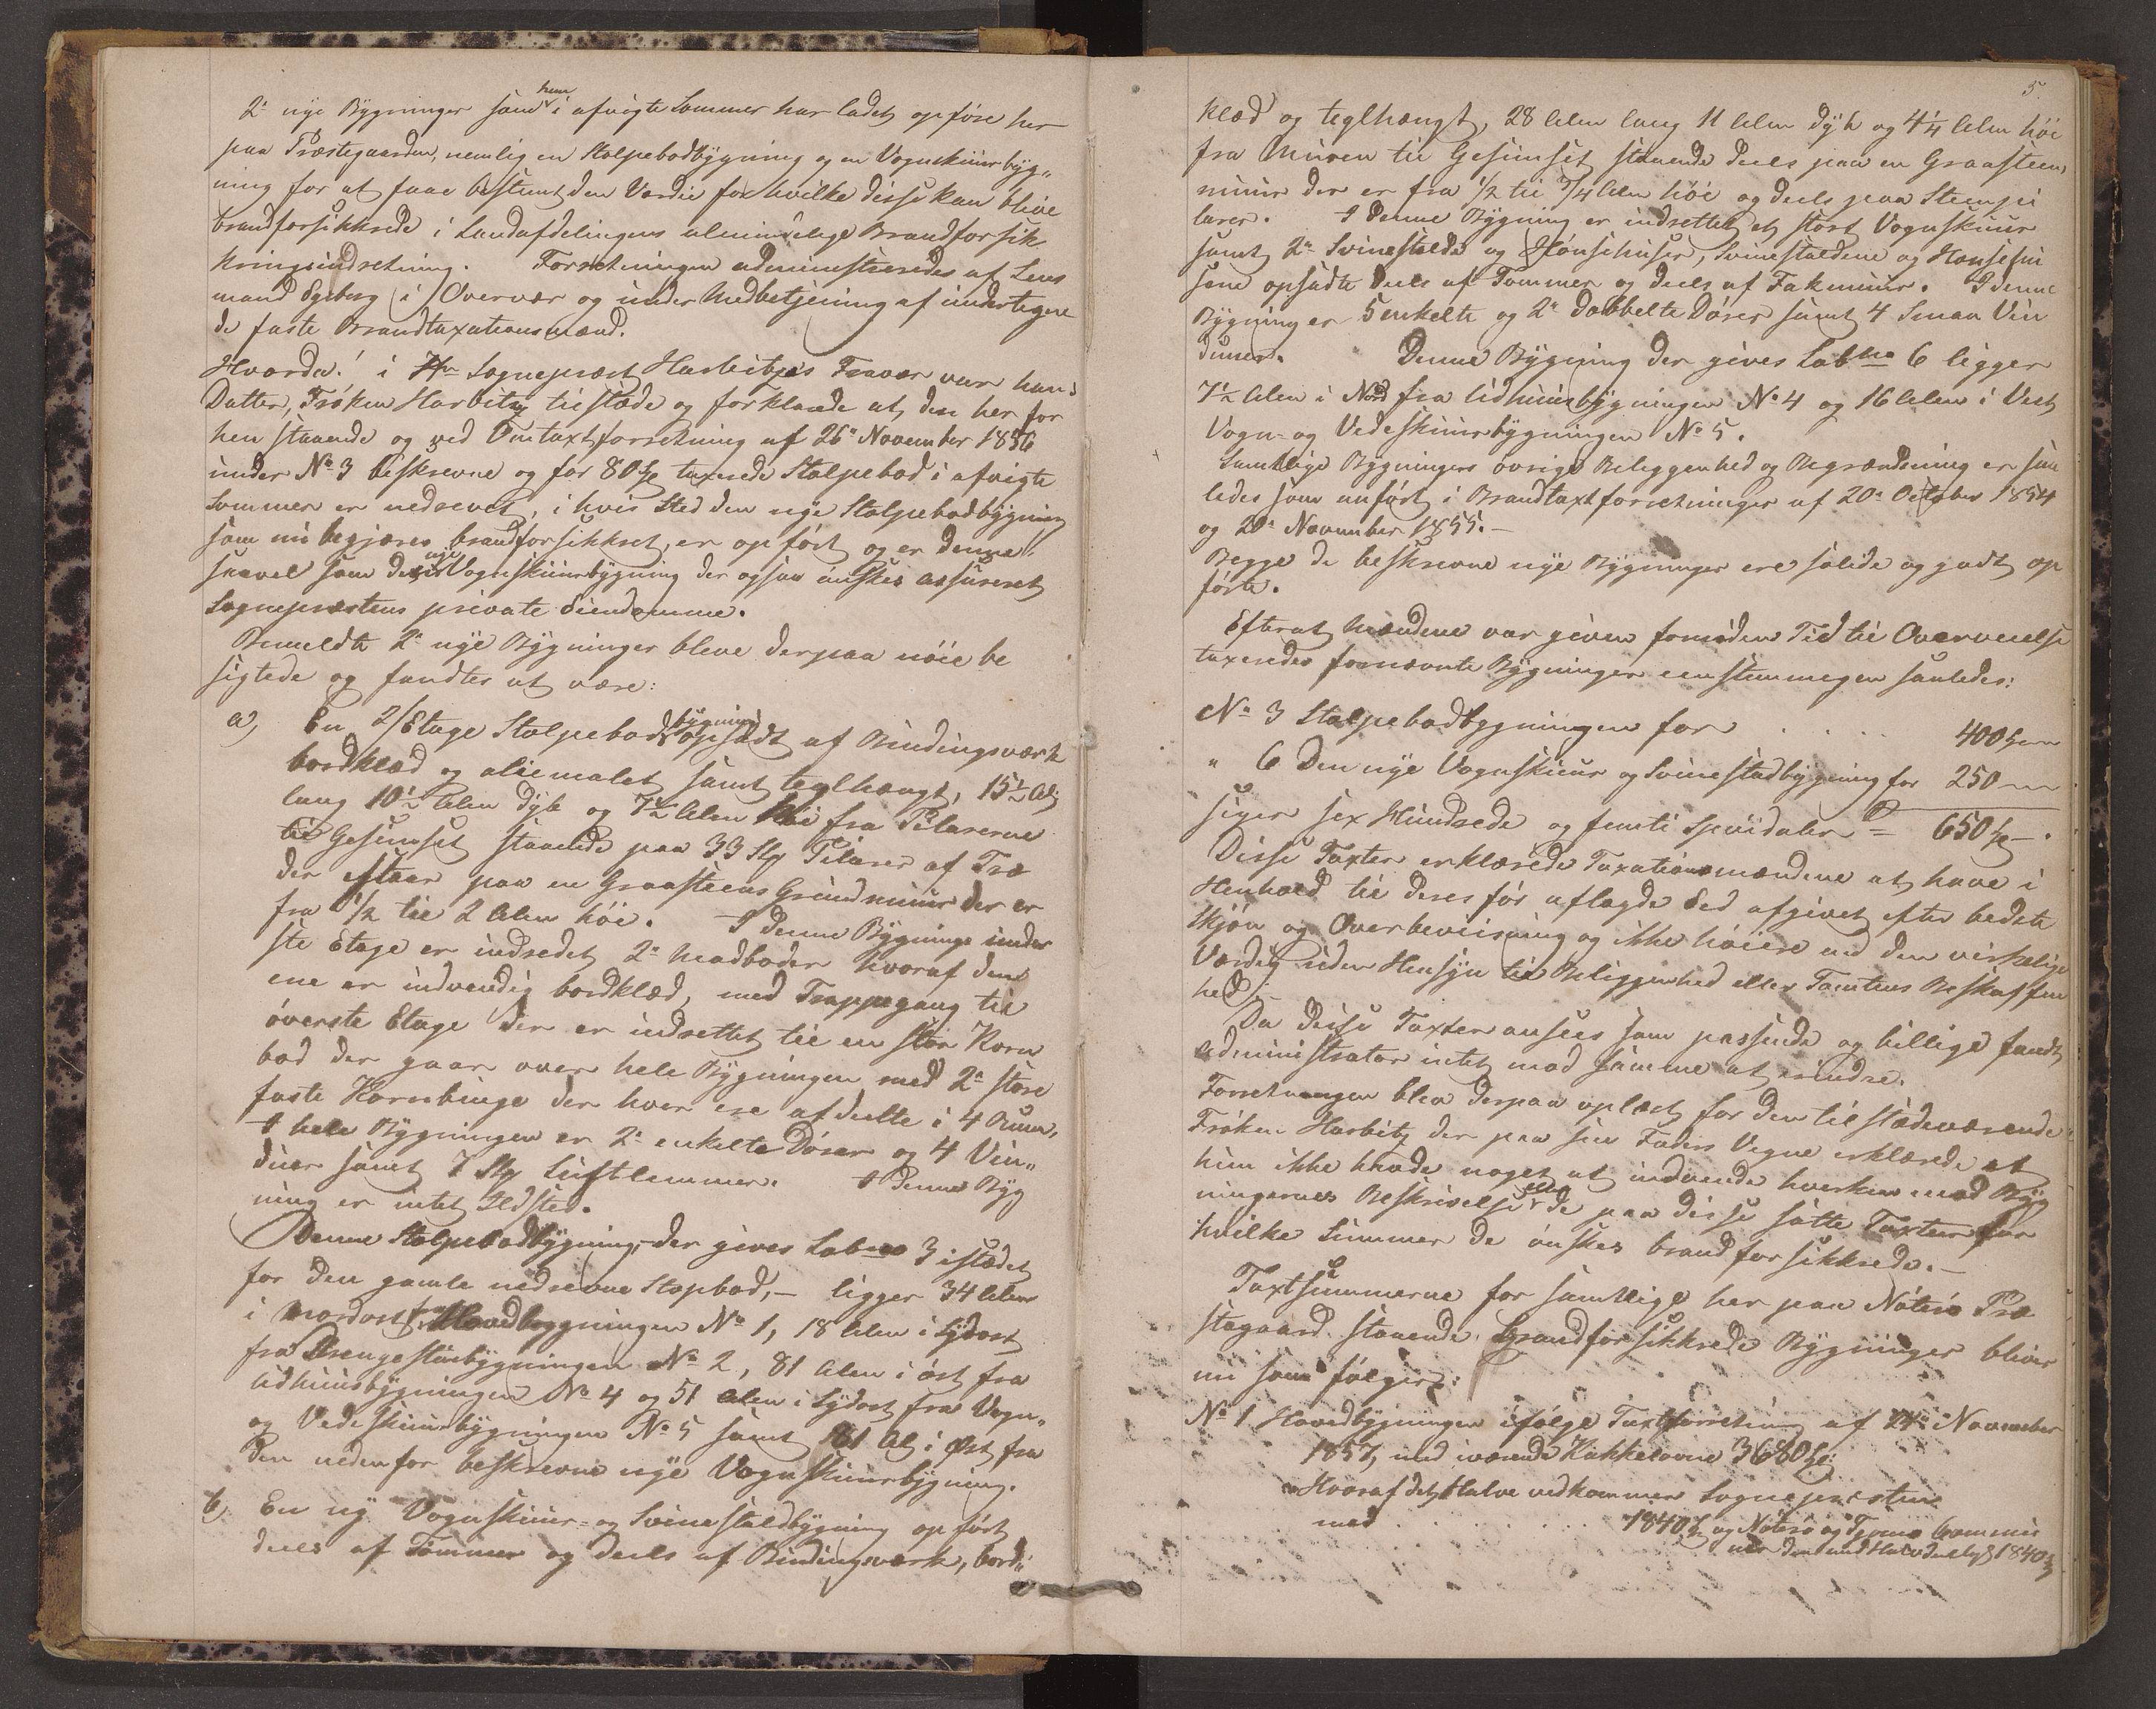 2de nye Bygninger som han i afvigte Sommer har ladet opføre her
paa Præstegaarden, nemlig en Stolpebodbygning og en Vognskuurbyg„
ning for at faae bestemt den Værdie for hvilke disse kan blive
brandforsikkrede i Landafdelingens almindelige Brandforsik
kringsindretning. Forretningen administreredes af Lens
mand Egeberg i Overvær og under Medbetjening af undertegne
de faste Brandtaxationsmænd.
Hvorda! i Hr Sognepræst Harbitz's Fravær var hans
Datter, Frøken Harbitz tilstæde og forklarede at den her for
hen staaende og ved Omtaxtforretning af 26de November 1856
under No 3 beskrevne og for 80 Spd taxerede Stolpebod i afvigte
Sommer er nedrevet, i hvis Sted den nye Stolpebodbygning
som nu begjæres brandforsikkret, er opført og er denne
saavel som den nye Vognskuurbygning der ogsaa ønskes assureret
Sognepræstens private Eiendomme.
Bemeldte 2de nye Bygninger bleve derpaa nøie be
sigtede og fandtes at være:
a) En 2/Etage Stolpebodsbygning opsadt af Bindingsværk
bordklæd og oliemalet samt teglhængt, 15½ Al.
lang 10½ Alen dyb og 7½ Alen høi fra Pilarerne
til Gesimset staaende paa 33 Stk Pilarer af Træ
der staar paa en Graasteens Grundmuur der er
fra ½ til 2 Alen høi. I denne Bygnings under
ste Etage er indredet 2de Madboder hvoraf den
ene er indvendig bordklæd, med Trappegang til
øverste Etage der er indrettet til en stor Korn
bod der gaar over hele Bygningen med 2de store
faste Kornbinge der hver ere afdeelte i 4 Rum,
I hele Bygningen er 2de enkelte Døre og 4 Vin„
duer samt 7 Stk Luftlemmer. I denne Byg
ning er intet Ildsted.
Denne Stolpebodbygning, der gives Lab no 3 istædet
for den gamle nedrevne Stopbod, – ligger 34 Alen
i Nordost fra Hovedbygningen No 1, 18 Alen i Sydost
fra Drengestuebygningen No 2, 81 Alen i øst fra
Udhuusbygningen No 4 og 51 Alen i Sydost fra Vogn„
og Vedeskuurbygningen No 5 samt 81 Al. i Øst fra
den nedenfor beskrevne nye Vognskuurbygning.
b) En ny Vognskuur- og Svinestaldbygning opført
deels af Tømmer og deels af Bindingsværk, bord„
5.
klæd og teglhængt, 28 Alen lang 11 Alen dyb og 4¼ Alen høi
fra Muren til Gesimset staaende deels paa en Graasteens
muur der er fra ½ til 7/4 Alen høi og deels paa Steenpi
larer. I denne Bygning er indrettet et stort Vognskuur
samt 2de Svinestalde og Hønsehuse, Svinestaldene og Hønsehu
sene opsadte deels af Tømmer og deels af Fakmuur. I denne
Bygning er 5 enkelte og 2de Dobbelte Døre samt 4 Smaa Vin
duer. Denne Bygning der gives Lab no 6 ligger
7½ Alen i Nord fra Udhuusbygningen No 4 og 16 Alen i Vest
Vogn- og Vedeskuursbygningen No 5.
Samtlige Bygningers øvrige Beliggenhed og Begrændsning er saa
ledes som anført i Brandtaxtforretninger af 20de October 1854
og 20de November 1855.–
Begge de beskrevne nye Bygninger ere solide og godt op
førte.
Efterat Mændene var given fornøden Tid til Overveielse
taxeredes fornævnte Bygninger eenstemmigen saaledes:
No 3 Stolpebodbygningen for . . . . 400 Spd
" 6 Den nye Vognskuur og Svinestadbygning for 250
siger sex Hundrede og femti Speciedaler = 650 Spd.
Disse Taxter erklærede Taxationsmændene at have i
Henhold til deres før aflagde Eed afgivet efter bedste
Skjøn og Overbeviisning og ikke høiere end den virkelige
Værdi uden Hensyn til Beliggenhed eller Tomtens Beskaffen
hed.
Da disse Taxter ansees som passende og billige fandt
Administrator intet mod samme at erindre.
Forretningen blev derpaa oplæst for den tilstædeværende
Frøken Harbitz der paa sin Faders Vegne erklærede at
hun ikke havde noget at indvende hverken mod Byg
ningernes Beskrivelse eller de paa disse satte Taxter for
hvilke Summer de ønskes brandforsikkrede.–
Taxtsummerne for samtlige her paa Nøterø Præ
stegaard staaende brandforsikkrede Bygninger bliver
nu som følger:
No 1 Hovedbygningen ifølge Taxtforretning af 24de November
1857, med iværende Kakkelovne 3680 Spd
Hvoraf det Halve vedkommer Sognepresten
med . . . . . 1840 Spd og Nøterø og Tjømø Commu
ner den anden Halvdeel 1840 Spd